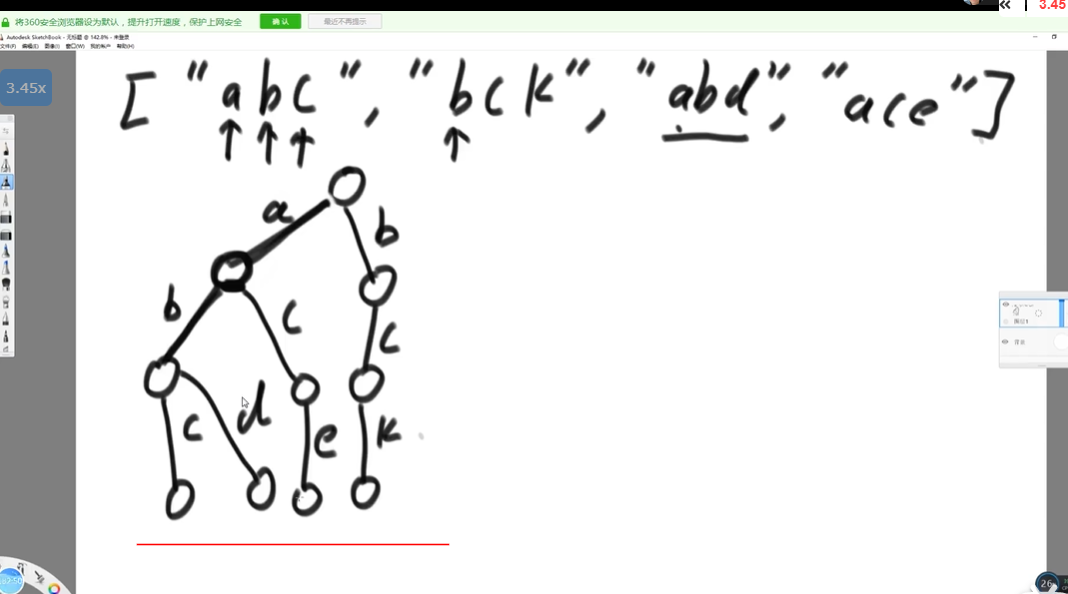 3.45
将360安全浏览器设为默认，提升打开速度，保护上网安全 确认 最近不再提示
Autodesk SketchBook - 无标题 @ 142.8% - 未登录
文件(F) 编辑(E) 图像(I) 窗口(W) 我的帐户 帮助(H)
3.45x
["abc", "bck", "abd", "ace"]
a
b
b
c
c
c
d
e
k
26